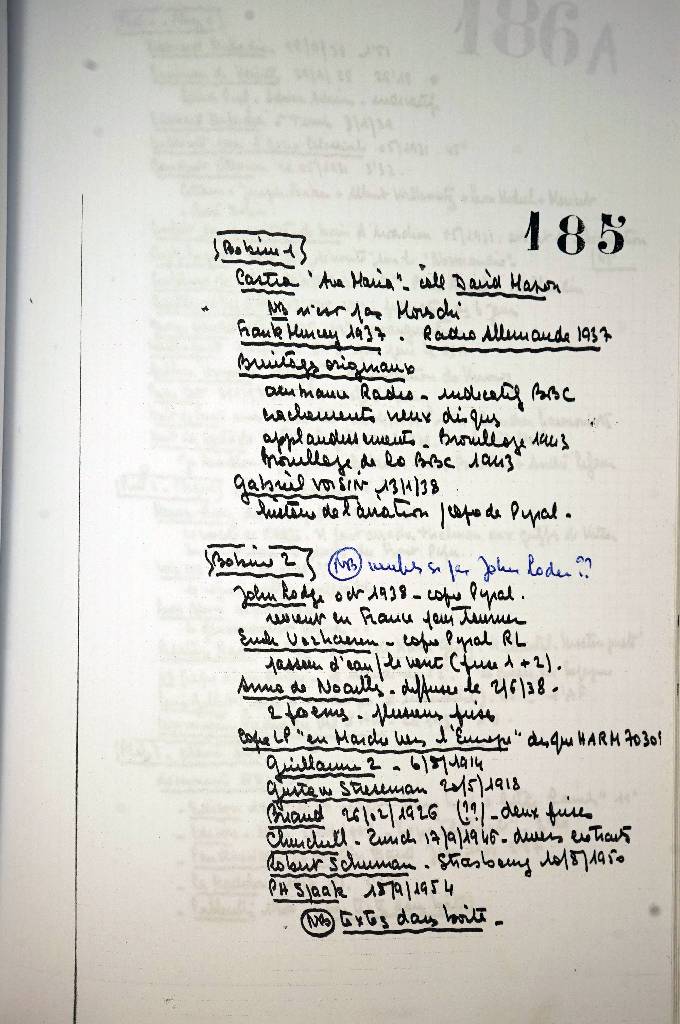 185
Bobine 1
Castra "Ave Maria" - coll David Mason
NB n'est pas Moreschi
Frank Hursey 1937 - Radio Allemande 1937
Bruitages originaux
Radio - indicatif BBC
crachements vieux disques
applaudissements - Brouillage 1943
Brouillage de la BBC 1943
Gabriel VOISIN 13/1/38
histoire de l'aviation / copie de Pyral -
Bobine 2 NB semble ne pas John Loder ??
John Lodge oct 1938 - copie Pyral.
revient en France pour tourner
Emile Verhaeren - copie Pyral RL
passeur d'eau / le vent (face 1 + 2).
Anna de Noailles - diffusé le 2/6/38 -
2 poèmes - plusieurs prises
Copie LP "en Marche vers l'Europe" disque HARM 70301
Guillaume 2 - 6/8/1914
Gustave Streseman 20/5/1918
Briand 26/02/1926 (??) - deux prises
Churchill - Zurich 17/9/1946 - divers extraits
Robert Schuman - Strasbourg 10/8/1950
PH Spaak 18/9/1954
NB textes dans boîte -